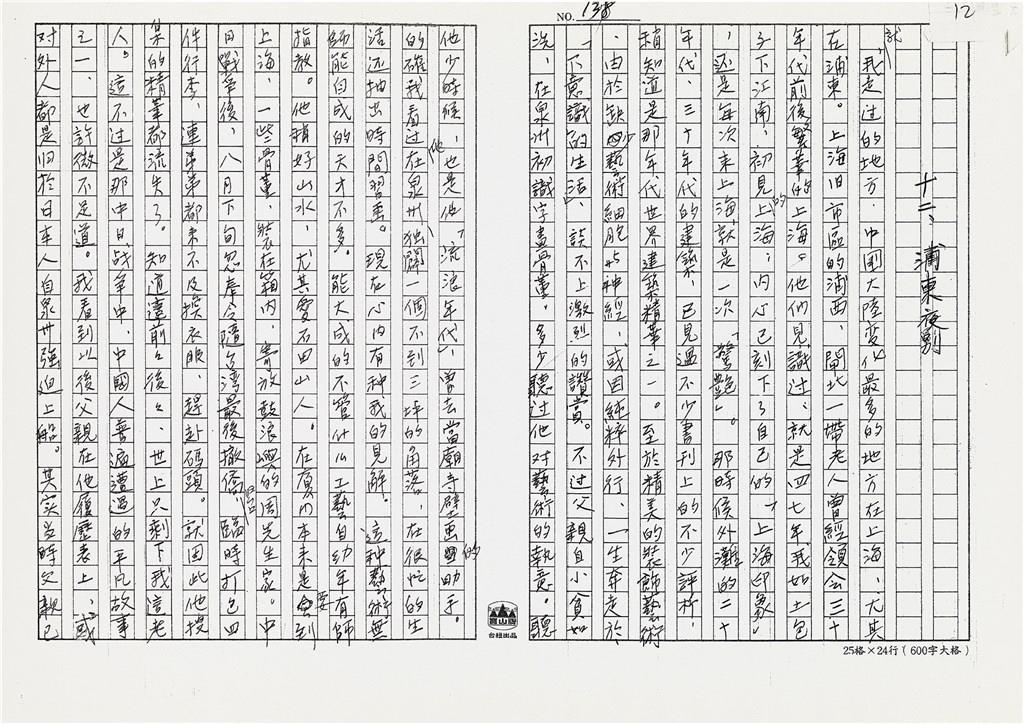 NO. 138
12
十二、浦東夜別
就我走过的地方，中國大陸变化最多的地方在上海，尤其
在浦東。上海旧市區的浦西，閘北一帶老人曾經領会三十
年代前後繁華的上海。他们見識过、就是四七年我如土包
子下江南，初見上海，内心已刻下了自己的「上海印象」
，还是每次来上海就是一次「驚艷」。那時候外灘的二十
年代、三十年代的建築，已見過不少書刊上的不少評析，
稍知道是那年代世界建築精華之一。至於精美的裝飾藝術
，由於缺少藝術細胞的神經，或因純粹外行，一生奔走於
「下意識的生活」談不上激烈的讚賞。不过父親自小貧如
洗，在泉州初識字畫骨董。多少聽过他对藝術的執意。聽
他少時候，也是他「流浪年代」，曾去當廟寺壁画的助手。
的確我看过他在泉州独闢一個不到三坪的角落，在很忙的生
活还抽出時間習畫。現在心内有种我的見解。这种藝術無
師能自成的天才不多。能大成的不管什么工藝自幼年有師
指教。他頗好山水，尤其爱石田山人。在廈門本来是要到
上海，一些骨董，裝在箱内，寄放鼓浪嶼的周先生家。中
日戰争後，八月下旬忽奉令隨台湾最後撤僑，臨時打包四
件行李，連弟弟都来不及換衣服，趕赴碼頭。就因此他搜
集的精華都流失了。知道這前前後後，世上只剩下我這老
人。這不过是那中日战争中，中國人普遍遭遇的平凡故事
之一，也許微不足道。我看到以後父親在他履歷表上，或
对外人都是归於日本人自泉州强迫上船。其实当時父親已
25格×24行（600字大格）
台紙出品